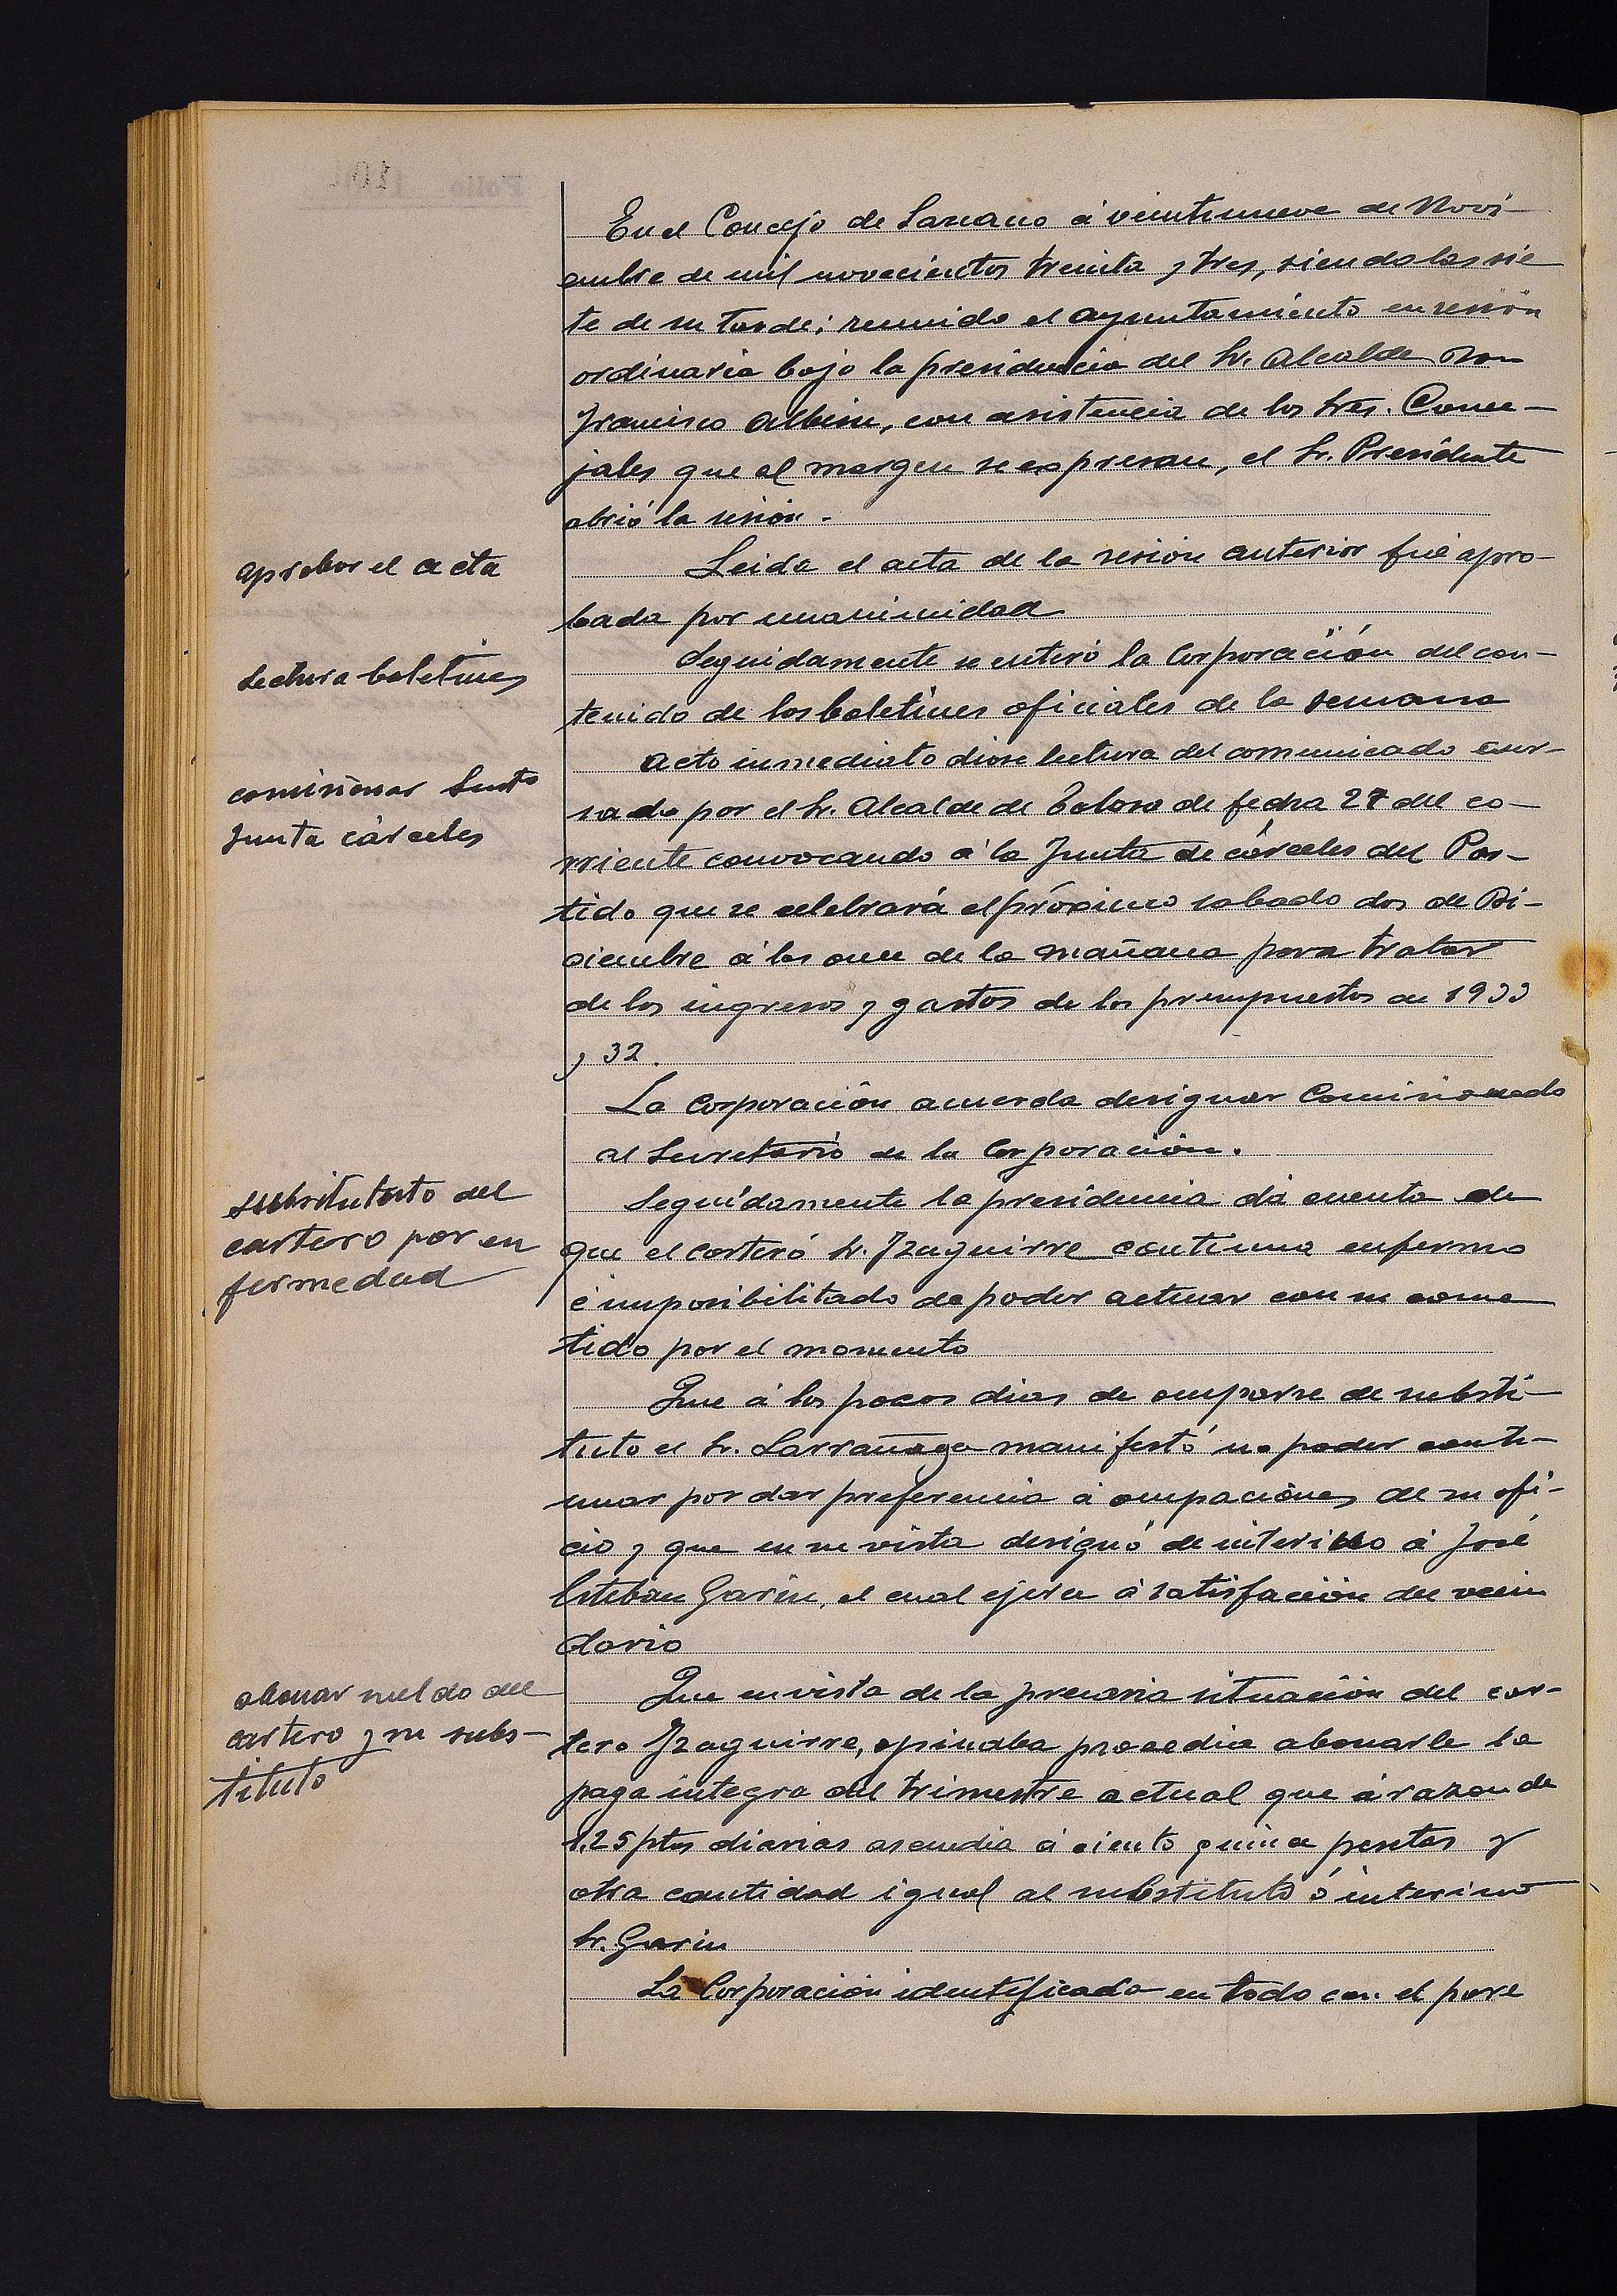 En el Concejo de Lazcano á veintinueve de Novi-
embre de mil novecientos treinta y tres, siendo las sie
te de su tarde; reunido el ayuntamiento en sesión
ordinaria bajo la presidencia del Sr. Alcalde Don
Francisco Albisu, con asistencia de los Sres. Conce-
jales que al margen se expresan, el Sr. Presidente
abrió la sesión.
aprobar el acta
Leida el acta de la sesión anterior fué apro-
bada por unanimidad
Lectura boletines
Seguidamente se enteró la Corporación del con-
tenido de los boletines oficiales de la semana
comisionar Srio
Junta cárceles
Acto inmediato diose lectura del comunicado cur-
sado por el Sr. Alcalde de Tolosa de fecha 27 del co-
rriente convocando á la Junta de cárceles del Par-
tido que se celebrará el próximo sabado dos de Di-
ciembre á las once de la mañana para tratar
de los ingresos y gastos de los presupuestos de 1933
y 32.
La Corporación acuerda designar Comisionado
al Secretario de la Corporación.
substituto del
cartero por en
fermedad
Seguidamente la presidencia dá cuenta de
que el cartero Sr. Izaguirre continua enfermo
é imposibilitado de poder actuar con su come
tido por el momento
Que á los pocos dias de ocuparse de substi-
tuto el Sr. Larrañaga manifestó no poder conti-
nuar por dar preferencia á ocupaciones de su ofi-
cio y que en su vista designó de interino á José
Esteban Garin, el cual ejerce á satisfacción del vecin
dario
abonar sueldo del
cartero y su subs-
tituto
Que en vista de la precaria situación del car-
tero Izaguirre, opinaba procedia abonarle la
paga integra del trimestre actual que á razon de
1,25 ptas diarias ascendia á ciento quince pesetas y
otra cantidad igual al substituto ó interino
Sr. Garin
La Corporación identificada en todo con el pare